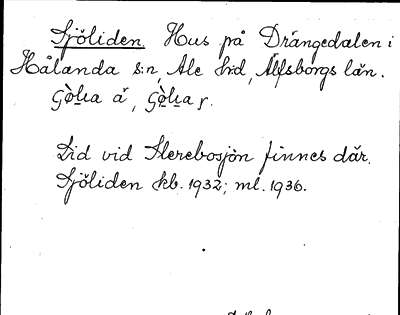 Sjöliden. Hus på Drängedalen i
Hålanda s:n, Ale hd, Älfsborgs län.
Lid vid Slerebosjön finnes där.
Sjöliden kb. 1932; ml. 1936.